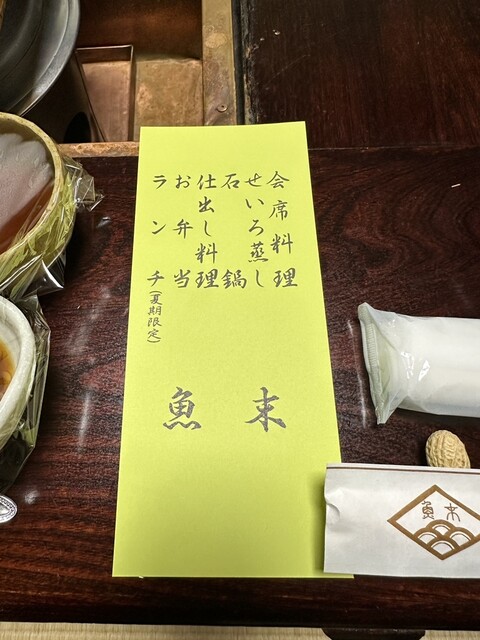 会席料理
せいろ蒸し
石鍋
仕出し料理
お弁当
ランチ(夏期限定)
魚末
魚末